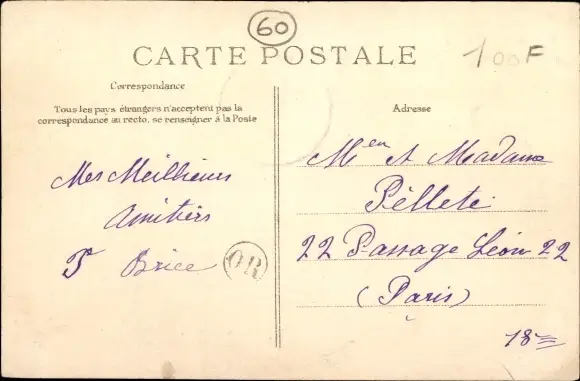 60
100F
CARTE POSTALE
Correspondance
Tous les pays étrangers n'acceptent pas la
correspondance au recto, se renseigner à la Poste
Mes Meillieurs
Amitiers
P Brice
OR
Adresse
Mr en et Madame
Pelleté
22 Passage Léon 22
(Paris)
18=